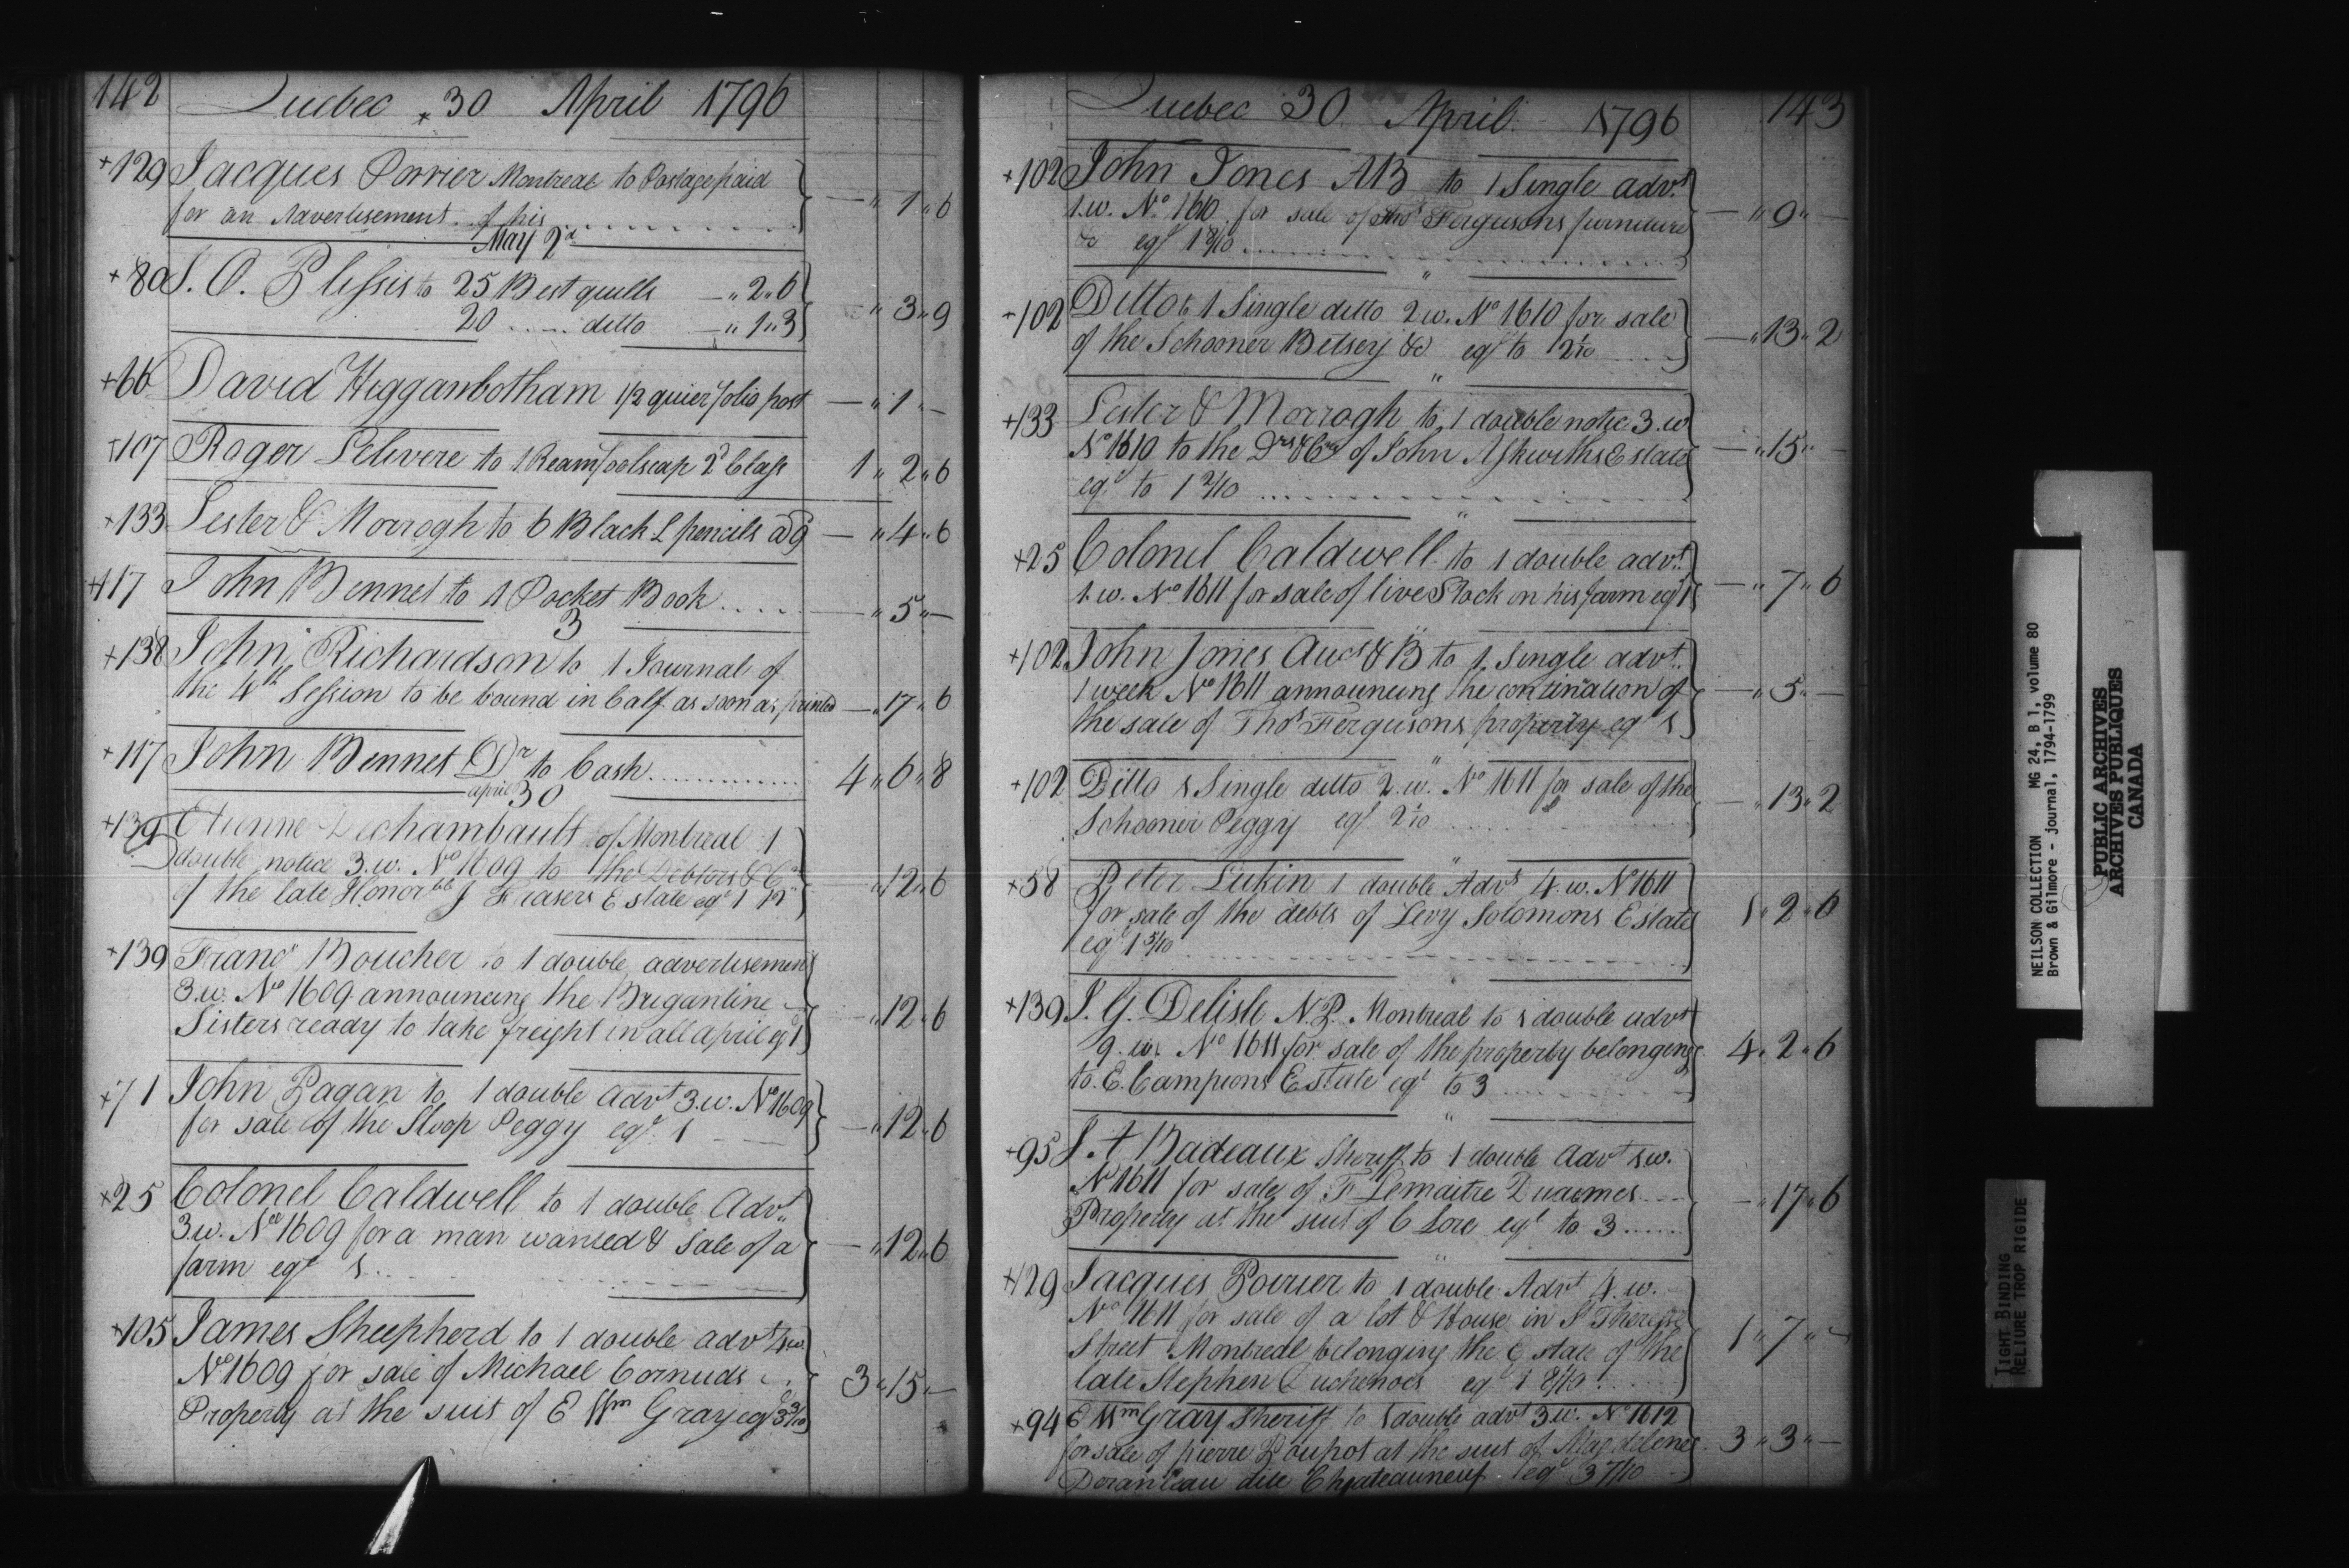 142 Quebec 30 April 1796
+129 Jacques Porrier Montreal to Postage paid
for an Advertisement of his — " 1 " 6
May 2d
+80 J. O. Plessis to 25 Best quills — " 2 " 6
20 ..... ditto — " 1 " 3 — " 3 " 9
+66 David Higgambotham 1/2 quier folio post — " 1 " —
+107 Roger Lelivere to 1 Ream foolscap 2d Class 1 " 2 " 6
+133 Lester & Morrogh to 6 Black L pencils @ 9 — " 4 " 6
+117 John Bennet to 1 Pocket Book .... — " 5 " —
3
+138 John Richardson to 1 Journal of
the 4th Session to be bound in Calf as soon as printed — " 17 " 6
+117 John Bennet Dr to Cash ............. 4 " 6 " 8
april 30
+139 Etienne Dechambault of Montreal 1
double notice 3.w. No 1609 to the Debtors & Crs
of the late Honorble J Frasers Estate eql 1 — " 12 " 6
+139 Frans Boucher to 1 double advertisement
3.w. No 1609 announcing the Brigantine
Sisters ready to take freight in all april eql 1 — " 12 " 6
+71 John Pagan to 1 double advt 3.w. No 1609
for sale of the Sloop Peggy eql 1 — " 12 " 6
+25 Colonel Caldwell to 1 double Advt
3w. No 1609 for a man wanted & sale of a
farm eql 1 .. — " 12 " 6
+105 James Sheepherd to 1 double advt 4w
No 1609 for sale of Michael Cornuds
Property at the suit of E Wm Gray eql 3 3/10 3 " 15 " —
Quebec 30 April 1796 143
+102 John Jones AB to 1 Single advt
1.w. No 1610 for sale of Thos Fergusons furniture
&c eql 1 8/10 — " 9 " —
+102 Ditto to 1 Single ditto 2w. No 1610 for sale
of the Schooner Betsey &c eql to 2 1/10 — " 13 " 2
+133 Lester & Morrogh to 1 double notice 3.w
No 1610 to the Drs & Crs of John Ashwiths Estate
eql to 1 2/10 — " 15 " —
+25 Colonel Caldwell to 1 double advt
1.w. No 1611 for sale of live Stock on his farm eql 1 — " 7 " 6
+102 John Jones Auct & B to 1 Single advt.
1 week No 1611 announcing the continuation of
the sale of Thos Fergusons property eql 1 — " 5 " —
+102 Ditto 1 Single ditto 2.w. No 1611 for sale of the
Schooner Peggy eql 2 1/10 — " 13 " 2
+58 Peter Lukin 1 double Advt 4.w. No 1611
for sale of the debts of Levy Solomons Estate
eql 1 5/10 1 " 2 " 6
+139 J. G. Delisle N.P. Montreal to 1 double advt
9.w. No 1611 for sale of the property belonging
to E. Campions Estate eql to 3 4 " 2 " 6
+95 J. A Badeaux Sheriff to 1 double Advt 1.w.
No 1611 for sale of F Lemaitre Duaimes
Property at the suit of C Lora eql to 3 ...... — " 17 " 6
+129 Jacques Poirier to 1 double Advt 4.w.
No 1611 for sale of a lot & House in St Therese
Street Montreal belonging the Estate of the
late Stephen eql 1 8/10 1 " 7 " —
+94 E Wm Gray Sheriff to 1 double advt 3w. No 1612
for sale of pierre Poupot at the suit of Magdelene
Doranleau dite Chateauneuf eql 3 7/10 3 " 3 " —
NEILSON COLLECTION MG 24, B 1, volume 80
Brown & Gilmore - journal, 1794-1799
PUBLIC ARCHIVES
ARCHIVES PUBLIQUES
CANADA
TIGHT BINDING
RELIURE TROP RIGIDE